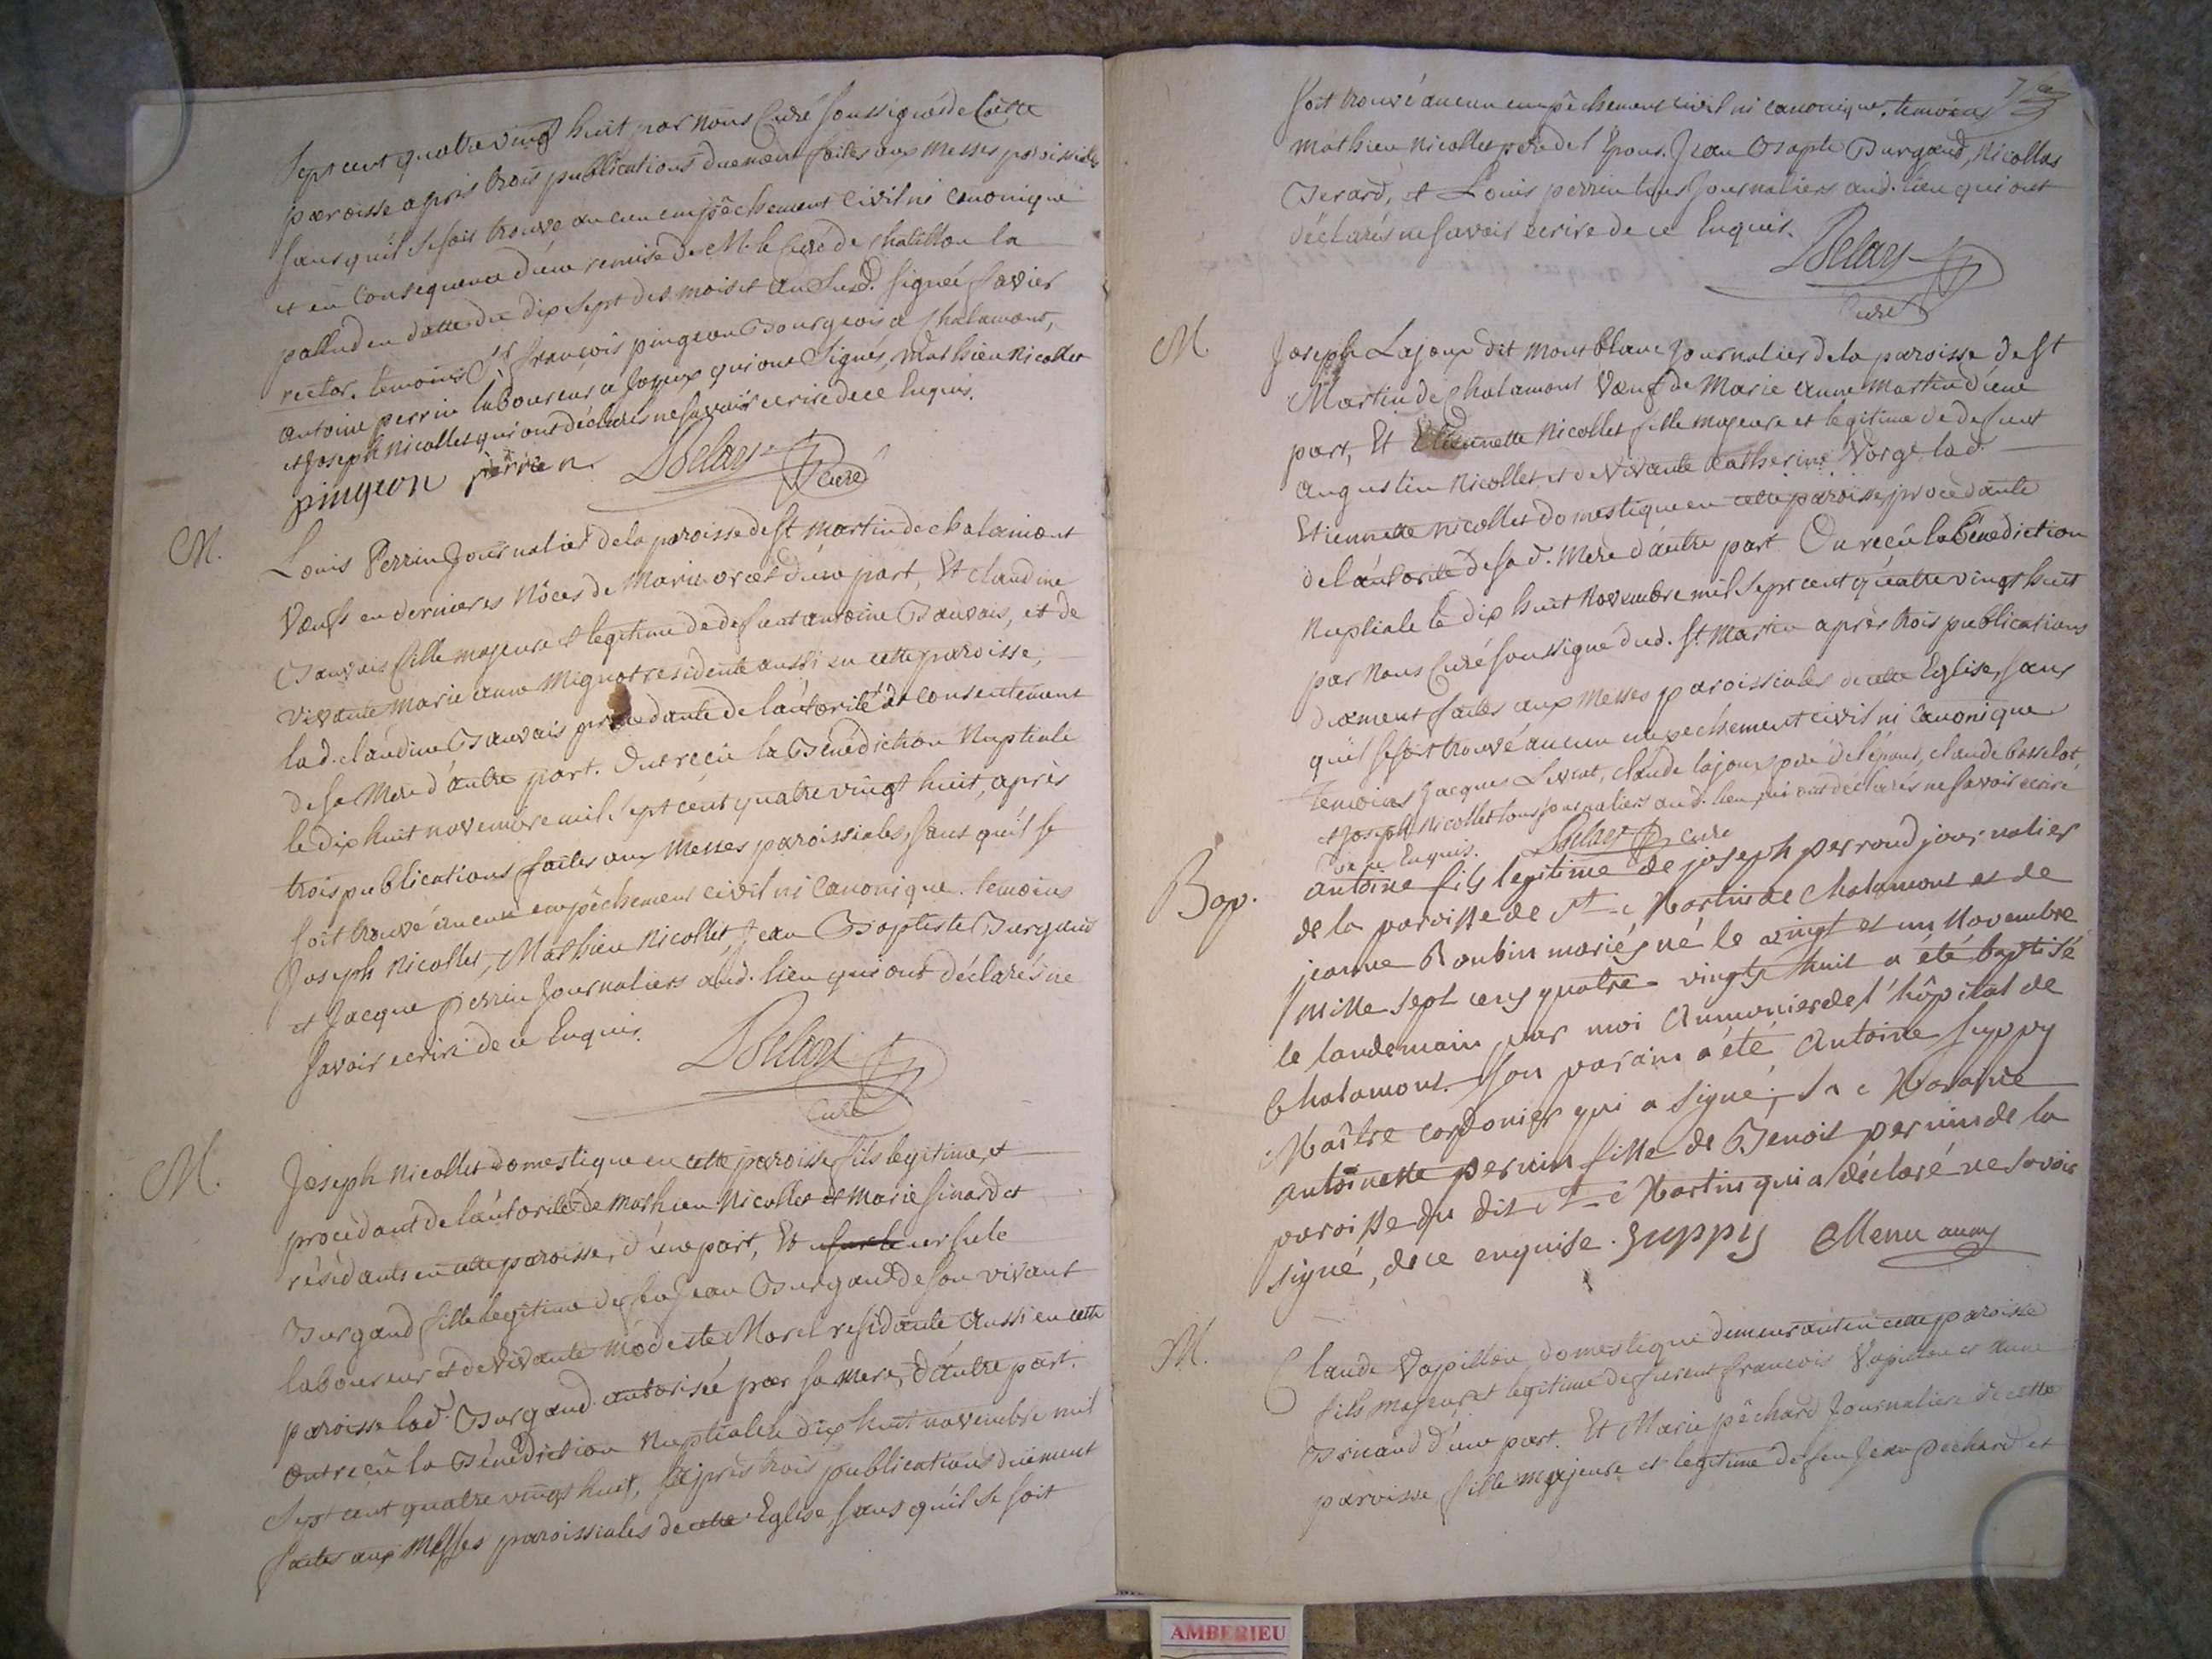 Sept cent quatre vingt huit par nous Curé soussigné de Cette
paroisse apris trois publications duement faites aux Messes paroissiales
sans qu'il se soit trouvé aucun empêchement Civil ni canonique
et en Consequence d'une remise de M. le Curé de Chatillon la
pallud en datte du dix Sept des mois et an Susd. Signée Savier
rector. temoins Sr. françois pingeon Bourgeois a Chalamont,
antoine perrin laboureur a Joyeux qui ont Signés, Mathieu Nicollet
et Joseph Nicollet qui ont déclarés ne savoir ecrire de ce Enquis.
pingeon perrin Curé
M. Louis Perrin Journalier de la paroisse de St. Martin de chalamont
Vœuf en dernieres Nôces de Marie d'une part, Et claudine
Bauvais fille majeure et legitime de defunt antoine Bauvais, et de
Vivante Marie anne Mignot residente aussi en cette paroisse,
lad. claudine Bauvais procedante de l'autorité et consentement
de sa Mere d'autre part. Ont reçu la Bénédiction Nuptiale
le dix huit novembre mil Sept cent quatre vingt huit, après
trois publications faites aux Messes paroissiales, sans qu'il se
soit trouvé aucun empêchement civil ni Canonique. temoins
Joseph Nicollet, Mathieu Nicollet, Jean Baptiste Burgaud
et Jacque perrin Journaliers aud. lieu qui ont déclarés ne
savoir ecrire de ce Enquis.
Curé
M. Joseph Nicollet domestique en cette paroisse fils legitime, et
procédant de l'autorité de Mathieu Nicollet et Marie Sinard et
résidants en cette paroisse, d'une part, Et ursule
Burgaud fille legitime de feu Jean Burgaud de son vivant
laboureur et de vivante modeste Morel residante Aussi en cette
paroisse lad. Burgaud autorisée par sa mere, d'autre part.
Ont reçû la Bénédiction Nuptiale le dix huit novembre mil
Sept cent quatre vingt huit, après trois publications duëment
faites aux Messes paroissiales de cette Eglise, sans qu'il se soit
soit trouvé aucun empêchement civil ni canonique. temoins
Mathieu Nicollet pere de l'Epoux. Jean Bapte Burgaud, Nicollas
Berard, et Louis perrin tous Journaliers aud. lieu qui ont
déclarés ne savoir ecrire de ce Enquis.
Curé
M. Joseph Lajoux dit Mont blanc Journalier de la paroisse de St
Martin de Chalamont Vœuf de Marie anne Martin d'une
part, Et Etiennette Nicollet fille majeure et legitime de defunt
augustin Nicollet et de Vivante Catherine Vorge lad.
Etiennette Nicollet domestique en cette paroisse, procedante
de l'autorité de sa d. Mere d'autre part. On reçu la Bénediction
Nuptiale le dix huit Novembre mil Sept cent quatre vingt huit
par Nous Curé soussigné dud. St. Martin après trois publications
duement faites aux Messes paroissiales de cette Eglise, sans
qu'il se soit trouvé aucun empechement civil ni Canonique
temoins Jacques Livrat, claude lajoux pere de l'époux, claude basselot,
et Joseph Nicollet tous Journaliers aud. lieu qui ont déclarés ne savoir ecrire
de ce Enquis. Curé
Bap. antoine fils legitime de joseph perroud journalier
de la paroisse de St Martin de Chalamont et de
jeanne Roubin mariés né le vingt et un Novembre
mille sept cens quatre vingts huit a été baptisé
le landemain par moi Aumonier de l'hôpital de
Chalamont. Son parain a été Antoine Suppy
Maître cordonier qui a signé, Sa Maraine
antoinette pernin fille de Benoit pernin de la
paroisse du dit St Martin qui a déclaré ne savoir
signé, de ce enquise. Suppy Menu aum
M. Claude Vapillon domestique demeurant en cette paroisse
fils majeur et legitime de defunt francois Vapillon et anne
Bricaud d'une part. Et Marie pêchard Journaliere de cette
paroisse fille majeure et legitime de feu Jean pechard et
AMBERIEU